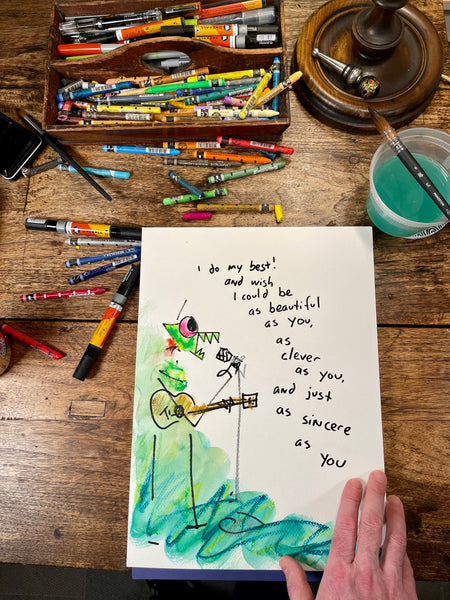 i do my best!
and wish
I could be
as beautiful
as you,
as
clever
as you,
and just
as sincere
as
you